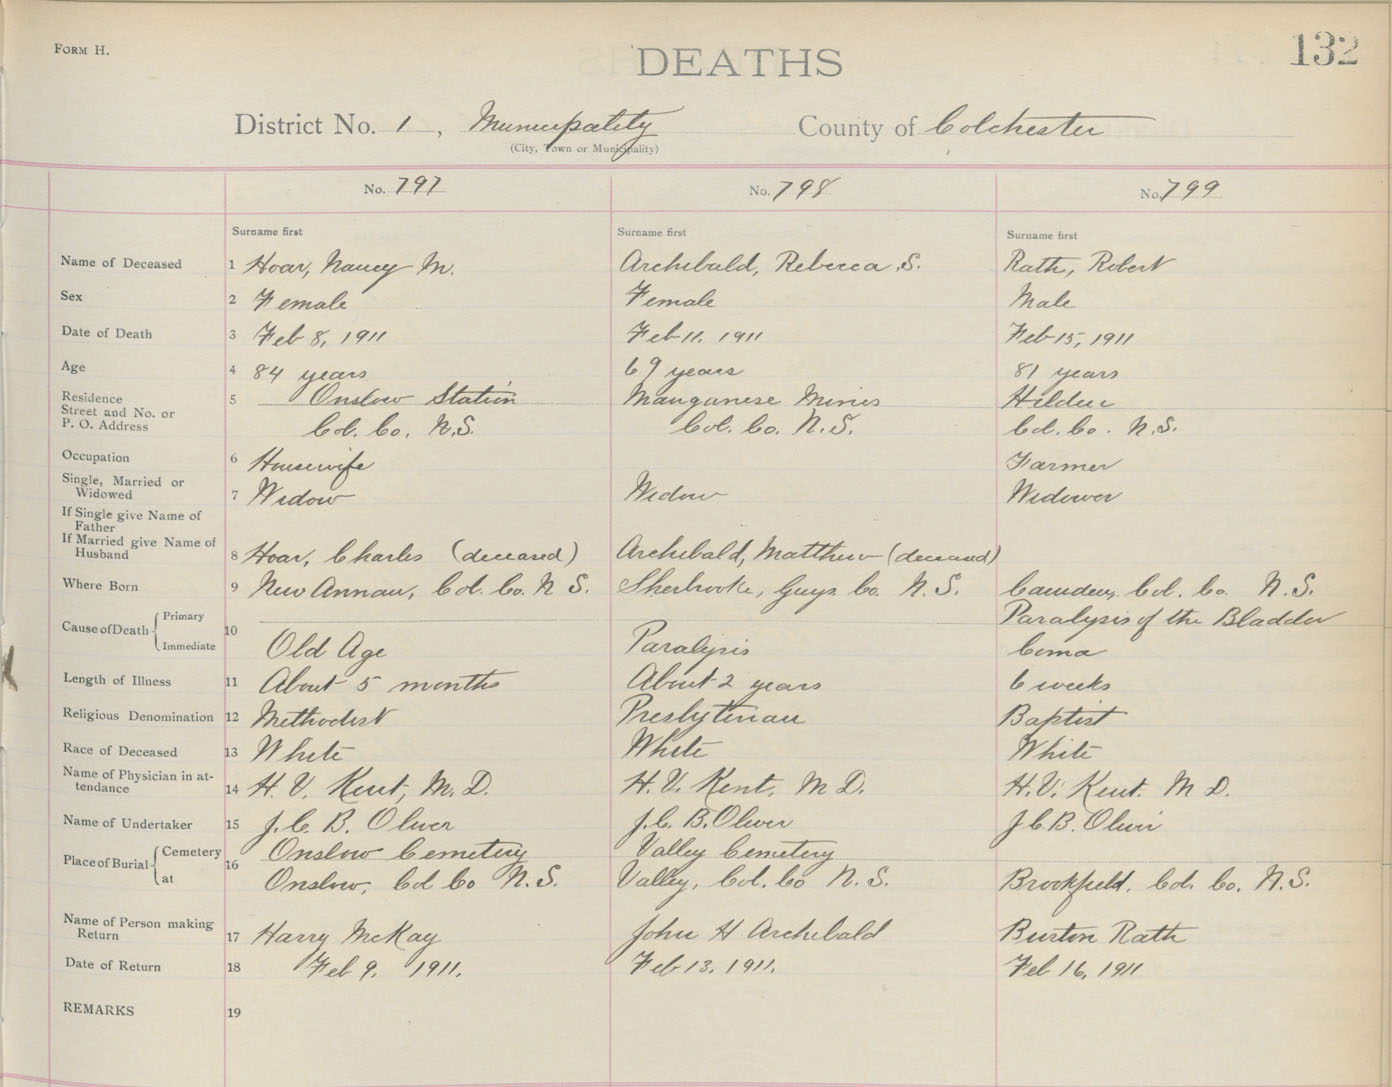 FORM H.
DEATHS
132
District No. 1, Municipality County of Colchester
(City, Town or Municipality)
No. 797 No. 798 No. 799
Surname first Surname first Surname first
Name of Deceased 1 Hoar, Nancy M. Archibald, Rebecca S. Rath, Robert
Sex 2 Female Female Male
Date of Death 3 Feb 8, 1911 Feb 11. 1911 Feb 15, 1911
Age 4 84 years 69 years 81 years
Residence 5 Onslow Station Manganese Mines Hilden
Street and No. or
P. O. Address Col. Co. N.S. Col. Co. N.S. Col. Co. N.S.
Occupation 6 Housewife Farmer
Single, Married or
Widowed 7 Widow Widow Widower
If Single give Name of
Father
If Married give Name of
Husband 8 Hoar, Charles (deceased) Archibald, Matthew (deceased)
Where Born 9 New Annan, Col. Co. N S. Sherbrooke, Guys. Co. N. S. Camden, Col. Co. N.S.
Cause of Death Primary 10 Paralysis of the Bladder
Immediate Old Age Paralysis Coma
Length of Illness 11 About 5 months About 2 years 6 weeks
Religious Denomination 12 Methodist Presbyterian Baptist
Race of Deceased 13 White White White
Name of Physician in at-
tendance 14 H. V. Kent, M. D. H. V. Kent. M D. H. V. Kent. M D.
Name of Undertaker 15 J. C. B. Oliver J. C. B. Oliver J C. B. Oliver
Place of Burial Cemetery 16 Onslow Cemetery Valley Cemetery
at Onslow, Col Co N.S. Valley, Col. Co N. S. Brookfield, Col. Co. N.S.
Name of Person making
Return 17 Harry McKay John H Archibald Burton Rath
Date of Return 18 Feb 9. 1911. Feb 13. 1911. Feb 16, 1911
REMARKS 19